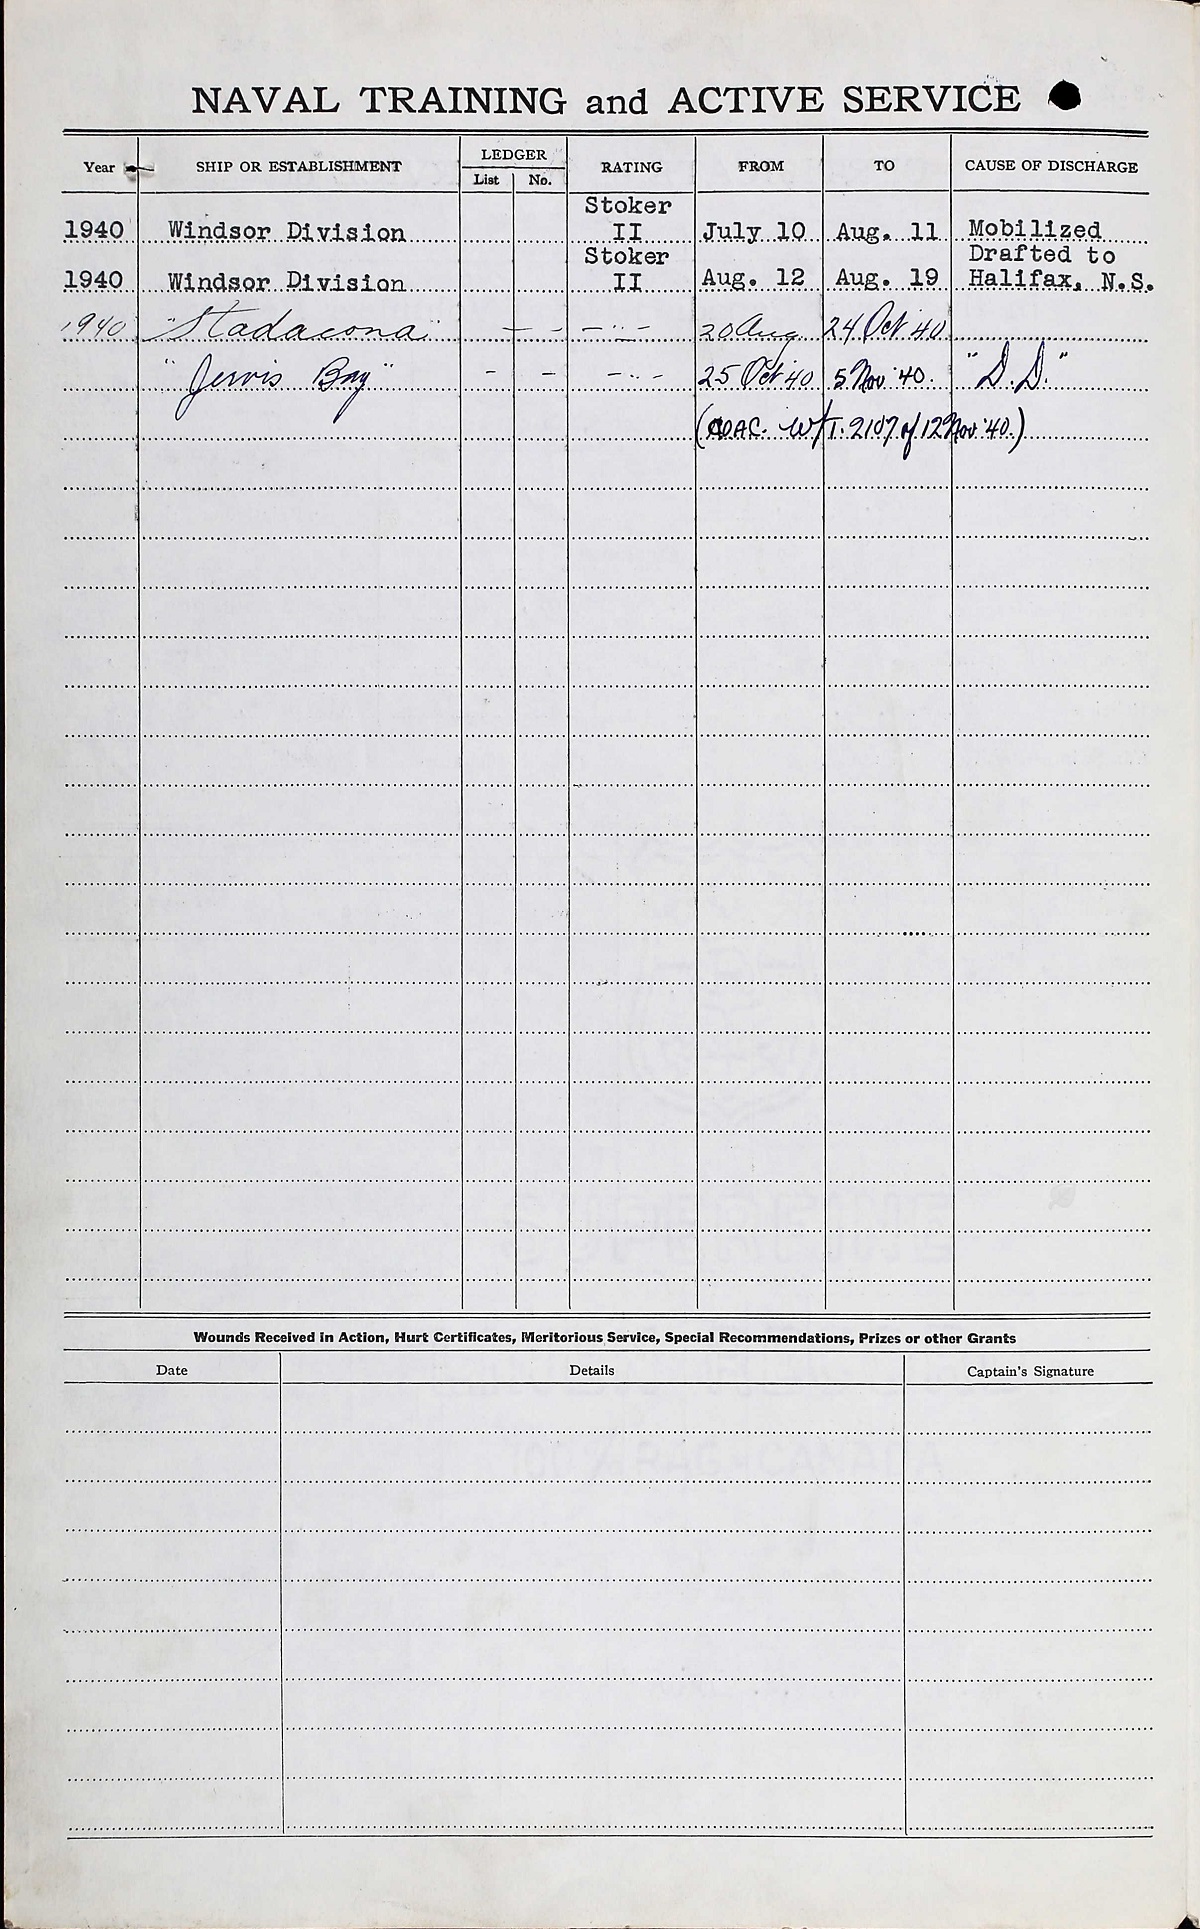 NAVAL TRAINING and ACTIVE SERVICE
Year SHIP OR ESTABLISHMENT LEDGER List No. RATING FROM TO CAUSE OF DISCHARGE
Stoker
1940 Windsor Division II July 10 Aug. 11 Mobilized
Stoker Drafted to
1940 Windsor Division II Aug. 12 Aug. 19 Halifax, N.S.
1940 "Stadacona" — - - — " — 20 Aug. 24 Oct 40
"Jervis Bay" - - - .. - 25 Oct 40 5 Nov '40. "D.D."
W/T. 2107 of 12 Nov '40.)
Wounds Received in Action, Hurt Certificates, Meritorious Service, Special Recommendations, Prizes or other Grants
Date Details Captain's Signature